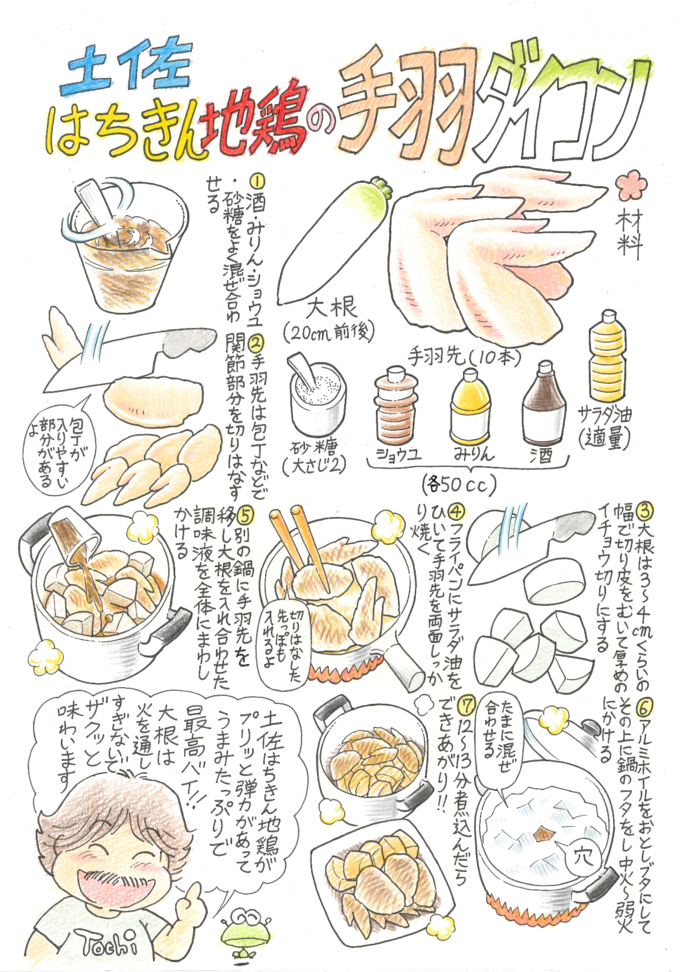 土佐
はちきん地鶏の手羽ダイコン
材料
大根
(20cm前後)
手羽先(10本)
サラダ油
(適量)
砂糖
(大さじ2)
ショウユ
みりん
酒
(各50cc)
①酒・みりん・ショウユ
・砂糖をよく混ぜ合わ
せる
②手羽先は包丁などで
関節部分を切りはなす
包丁が
入りやすい
部分がある
よ
③大根は3〜4cmくらいの
幅で切り皮をむいて厚めの
イチョウ切りにする
④フライパンにサラダ油を
ひいて手羽先を両面しっか
り焼く
切りはなした
先っぽも
入れるよ
⑤別の鍋に手羽先を
移し大根を入れ合わせた
調味液を全体にまわし
かける
⑥アルミホイルをおとしブタにして
その上に鍋のフタをし中火〜弱火
にかける
たまに混ぜ
合わせる
穴
⑦12〜13分煮込んだら
できあがり!!
土佐はちきん地鶏が
プリッと弾力があって
うまみたっぷりで
最高バイ!!
大根は
火を通し
すぎないで
ザクッと
味わいます
Tochi